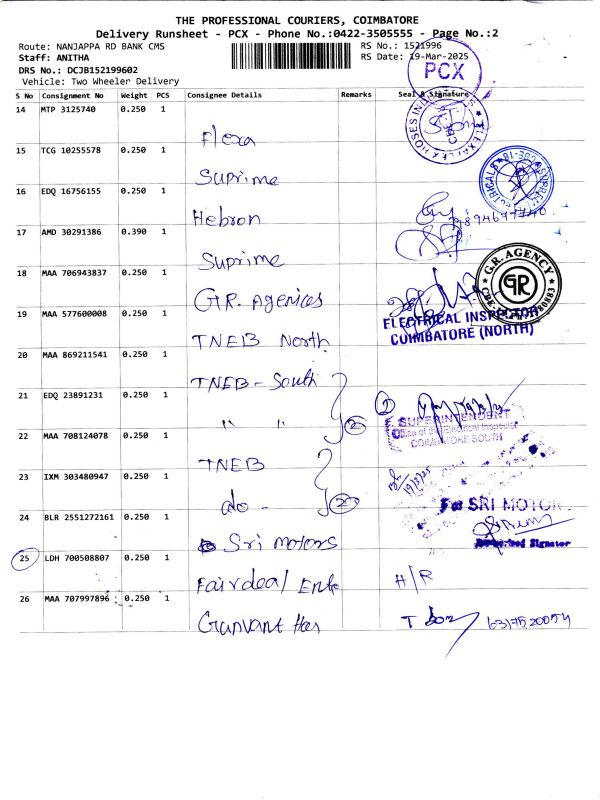 THE PROFESSIONAL COURIERS, COIMBATORE
Delivery Runsheet - PCX - Phone No.:0422-3505555 - Page No.:2
Route: NANJAPPA RD BANK CMS RS No.: 1521996
Staff: ANITHA RS Date: 19-Mar-2025
DRS No.: DCJB152199602
Vehicle: Two Wheeler Delivery
PCX
S No Consignment No Weight PCS Consignee Details Remarks Seal & Signature
14 MTP 3125740 0.250 1 Flexa
15 TCG 10255578 0.250 1 Suprime
16 EDQ 16756155 0.250 1 Hebron
17 AMD 30291386 0.390 1 Suprime
18 MAA 706943837 0.250 1 G.R. Agenices
G.R. AGENCY
GR
19 MAA 577600008 0.250 1 TNEB North
ELECTRICAL INSPECTOR
COIMBATORE (NORTH)
20 MAA 869211541 0.250 1 TNEB - South
21 EDQ 23891231 0.250 1 " " (2)
SUPERINTENDENT
Office of the Electrical Inspector
COIMBATORE SOUTH
22 MAA 708124078 0.250 1 TNEB
23 IXM 303480947 0.250 1 do -
19/3/25
For SRI MOTOR
24 BLR 2551272161 0.250 1 Sri Motors
Authorised Signator
25 LDH 700508807 0.250 1 Fairdeal Ent H/R
26 MAA 707997896 0.250 1 Gunvant